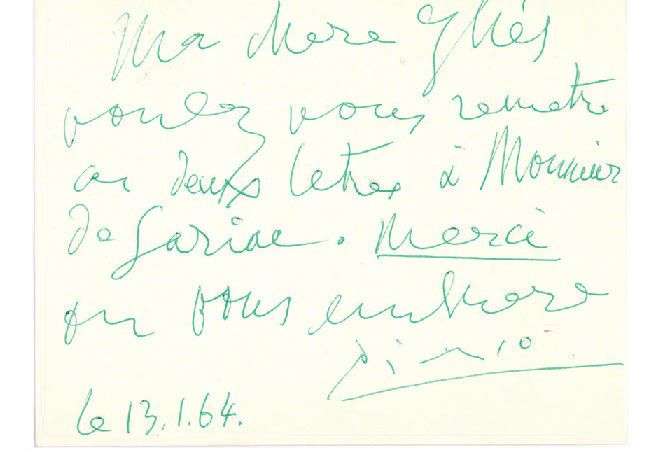 Ma chere Ynès
voulez vous remetre
ces deux letres à Monsieur
de Sariac. Merci
on vous embrasse
Picasso
le 13.1.64.